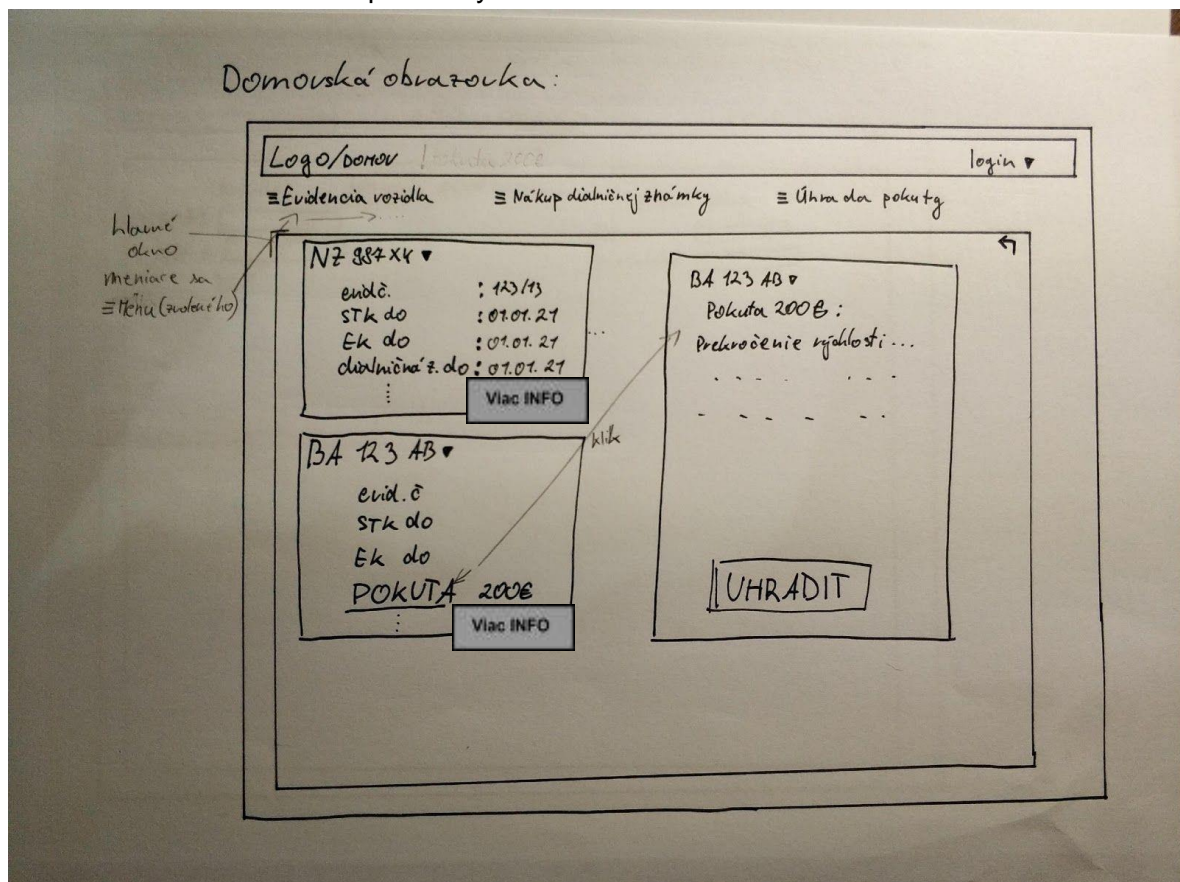 Domovská obrazovka:
Logo/DOMOV
login ▾
≡ Evidencia vozidla
≡ Nákup dialničnej známky
≡ Úhrada pokuty
hlavné
okno
meniace sa
≡ Menu (zvoleného)
NZ 987 XY ▾
evid č. : 123/13
STK do : 01.01.21
EK do : 01.01.21
dialničná z. do : 01.01.21
Viac INFO
BA 123 AB ▾
evid. č
STK do
EK do
POKUTA 200€
Viac INFO
klik
BA 123 AB ▾
Pokuta 200€ :
Prekročenie rýchlosti ...
UHRADIT